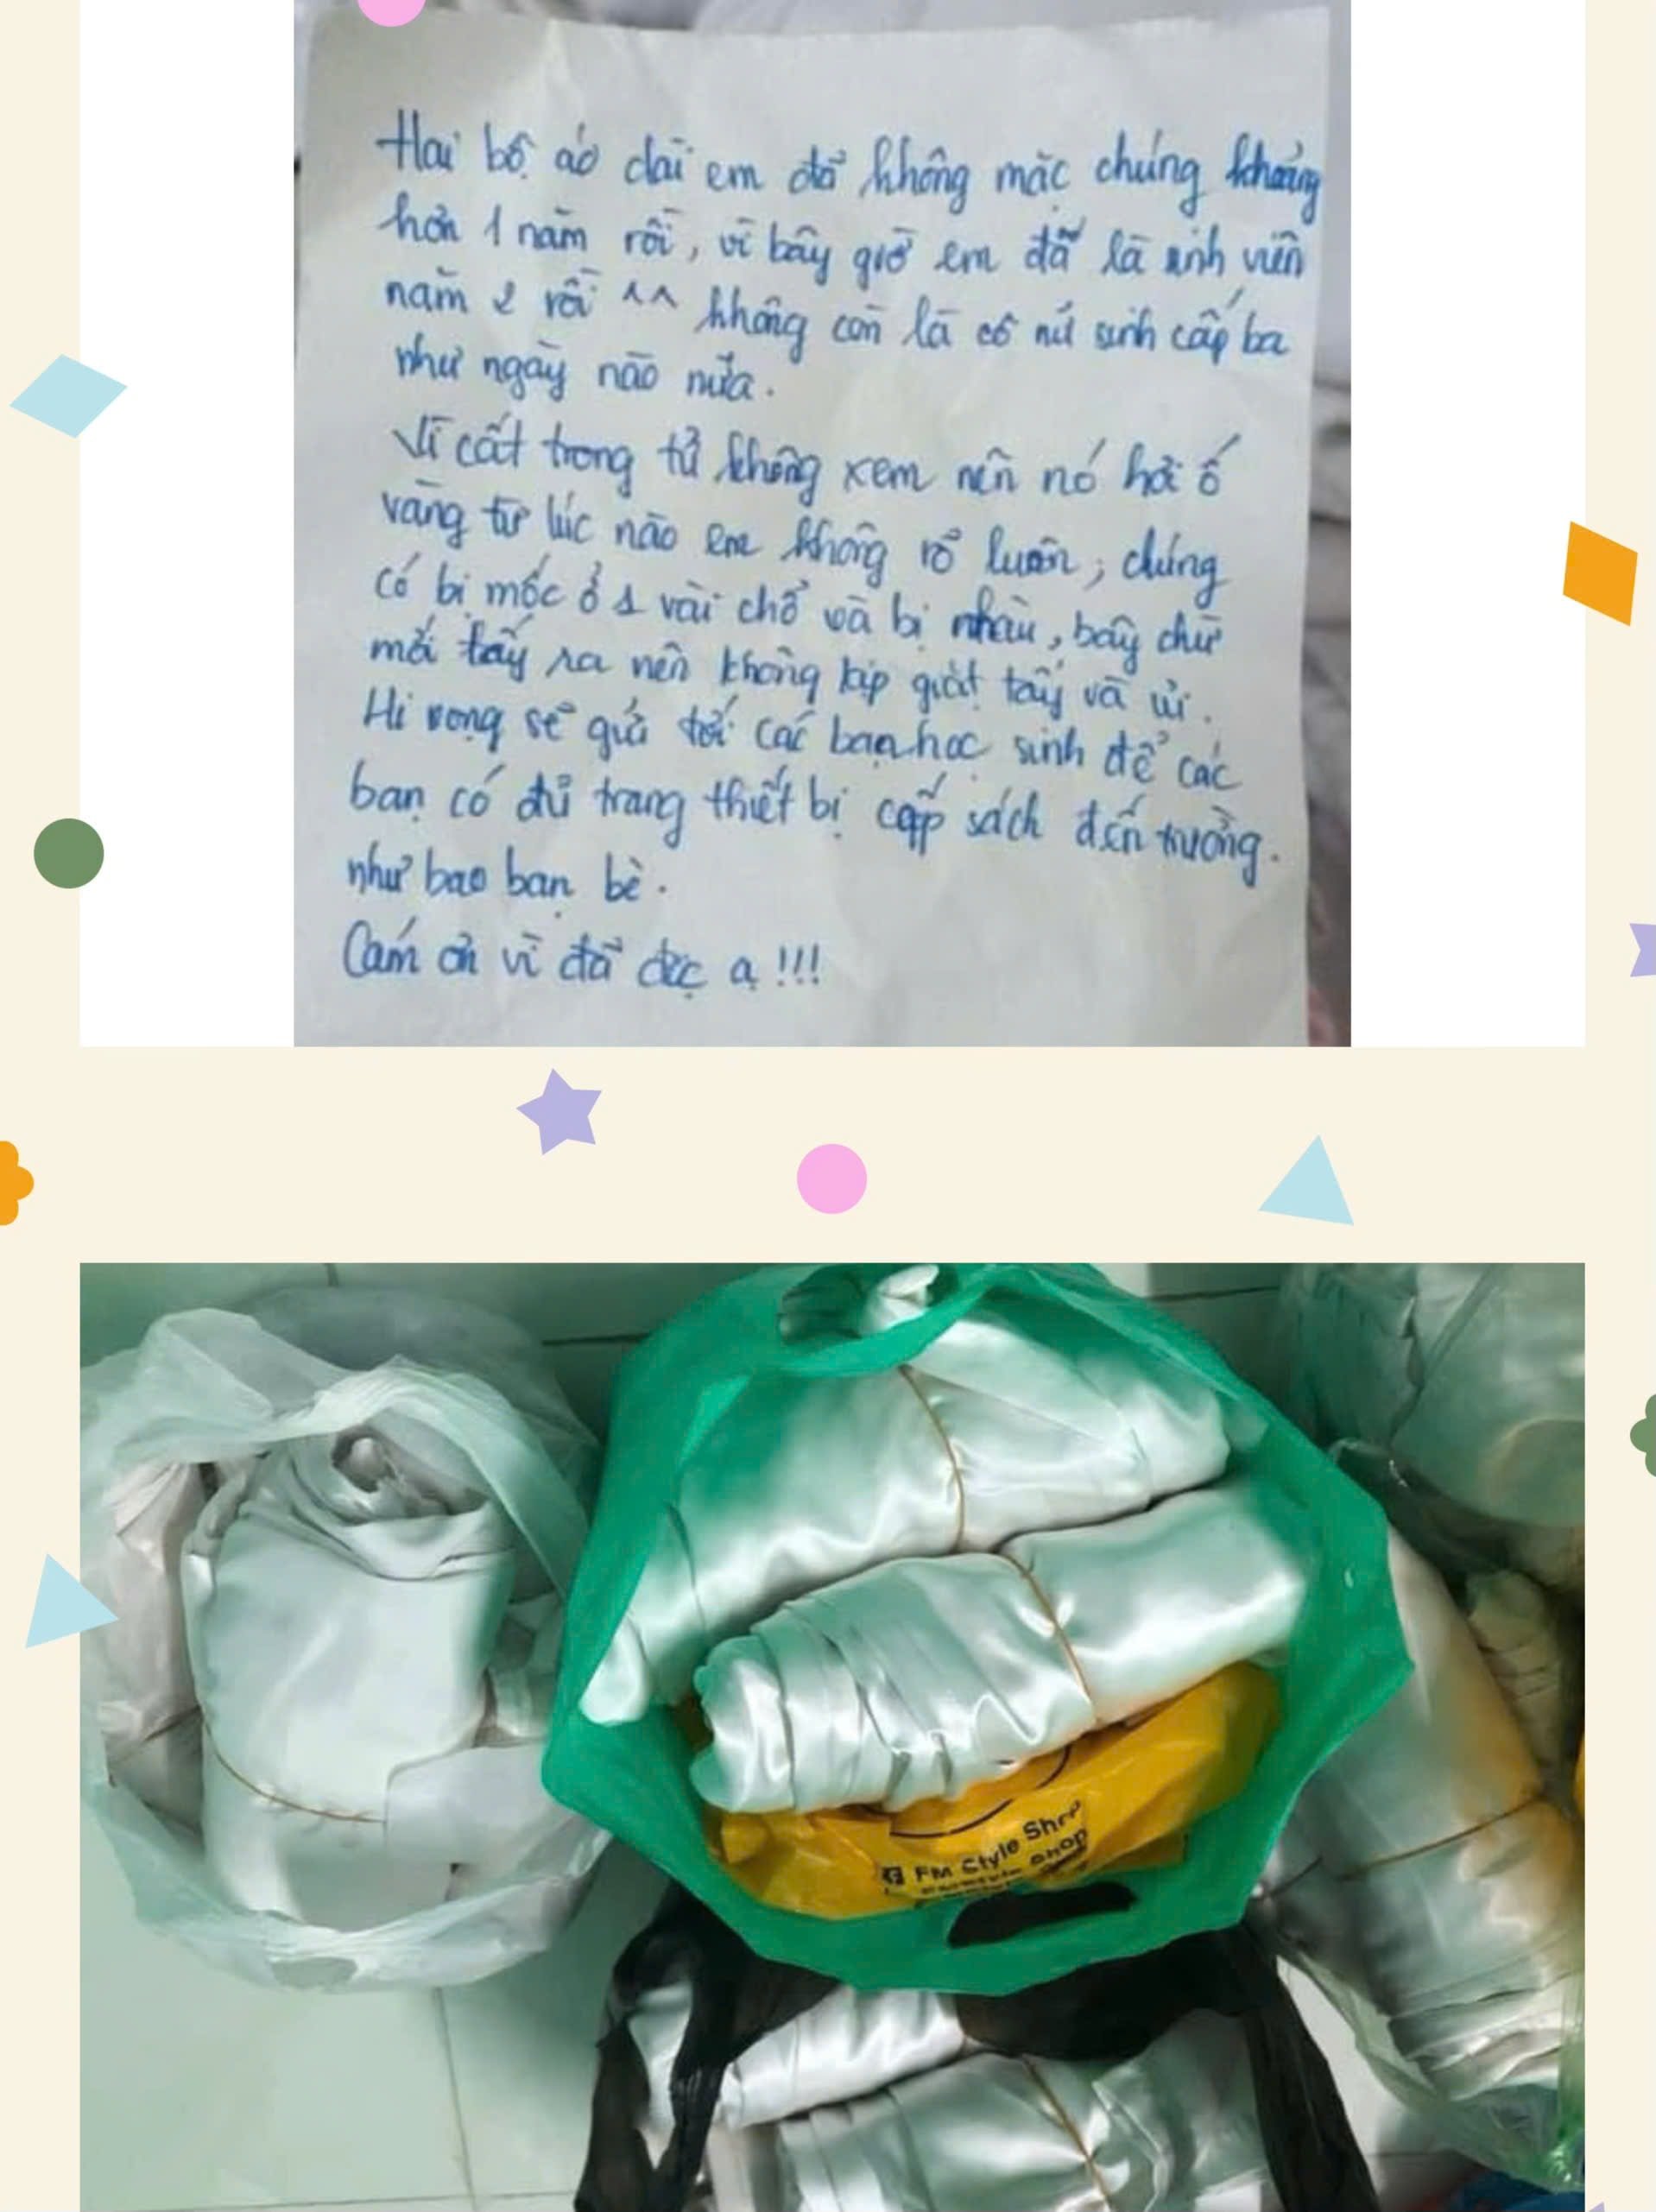 Hai bộ áo dài em đã không mặc chúng khoảng
hơn 1 năm rồi, vì bây giờ em đã là sinh viên
năm 2 rồi ^^ không còn là cô nữ sinh cấp ba
như ngày nào nữa.
Vì cất trong tủ không xem nên nó hơi ố
vàng từ lúc nào em không rõ luôn, chúng
có bị mốc ở 1 vài chỗ và bị nhàu, bây chừ
mới thấy ra nên không kịp giặt tẩy và ủi.
Hi vọng sẽ gửi tới các bạn học sinh để các
bạn có đủ trang thiết bị cặp sách đến trường.
như bao bạn bè.
Cám ơn vì đã đọc ạ !!!
FM Style Shop